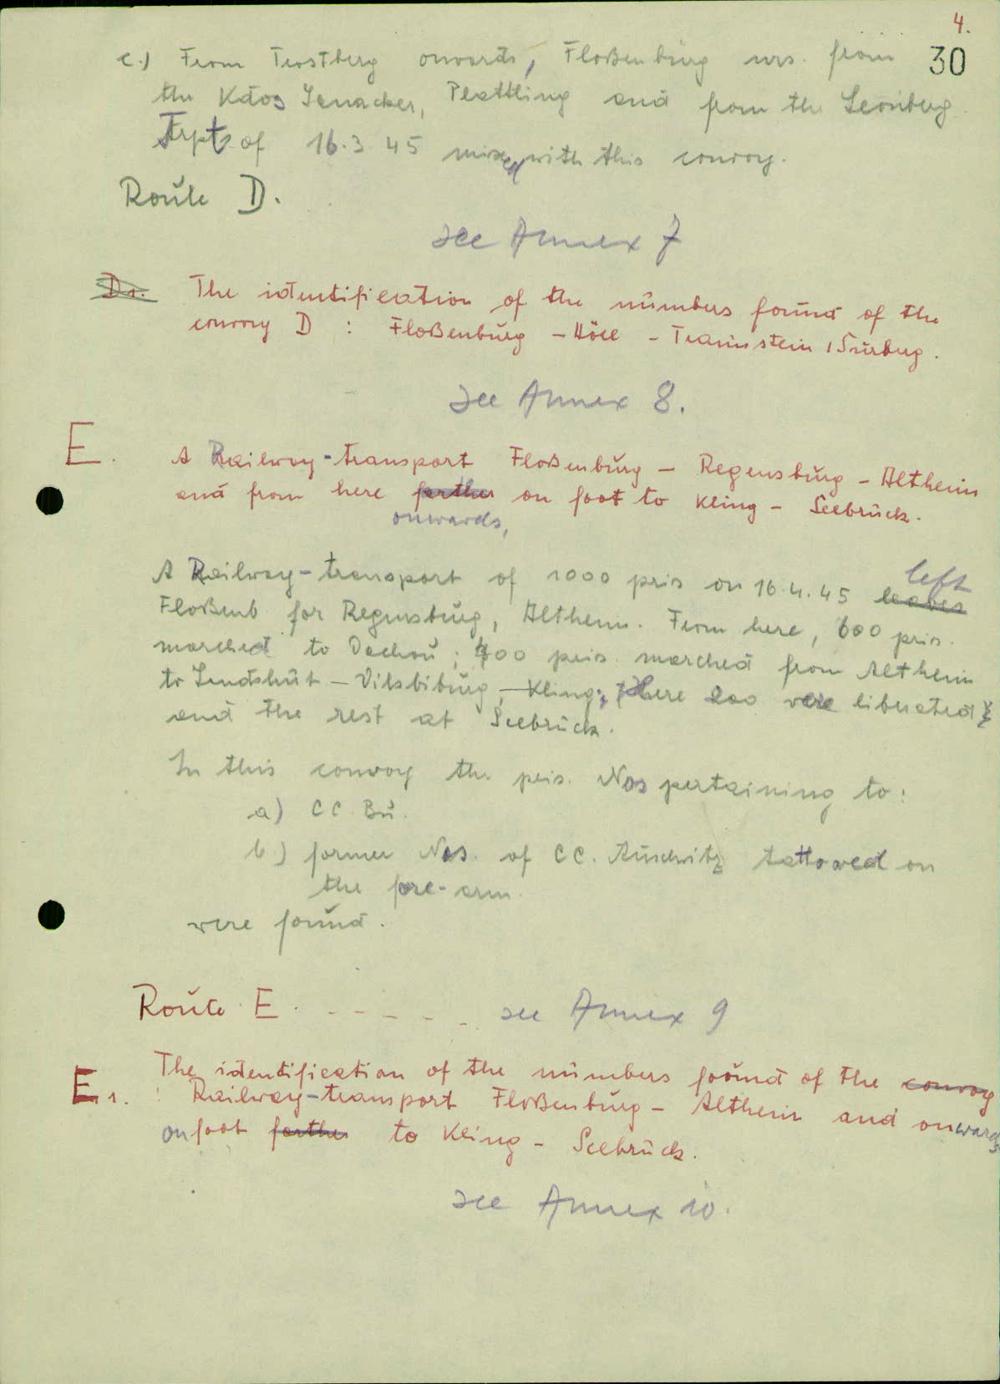 4.
30
c.) From Trostberg onwards, Floßenbürg nrs. from
the Kdos Ganacker, Plattling and from the Leonberg
Trpt of 16.3 45 mixed with this convoy.
Route D.
see Annex 7
D1. The identification of the numbers found of the
convoy D : Floßenbürg - Höll - Traunstein / Surberg.
see Annex 8.
E. A Railway-transport Floßenbürg - Regensburg - Altheim
and from here further on foot to Kling - Seebruck.
onwards,
A Railway-transport of 1000 pris on 16.4.45 leaves left
Floßenb. for Regensburg, Altheim. From here, 600 pris.
marched to Dachau; 400 pris. marched from Altheim
to Landshut - Vilsbiburg, - Kling; there 200 were liberated &
and the rest at Seebruck.
In this convoy the pris. Nos pertaining to:
a) CC Bu.
b) former Nos. of CC. Auschwitz tattowed on
the fore-arm.
were found.
Route E. - - - - - see Annex 9
E1. The identification of the numbers found of the convoy
: Railway-transport Floßenbürg - Altheim and onwards
on foot further to Kling - Seebruck.
see Annex 10.